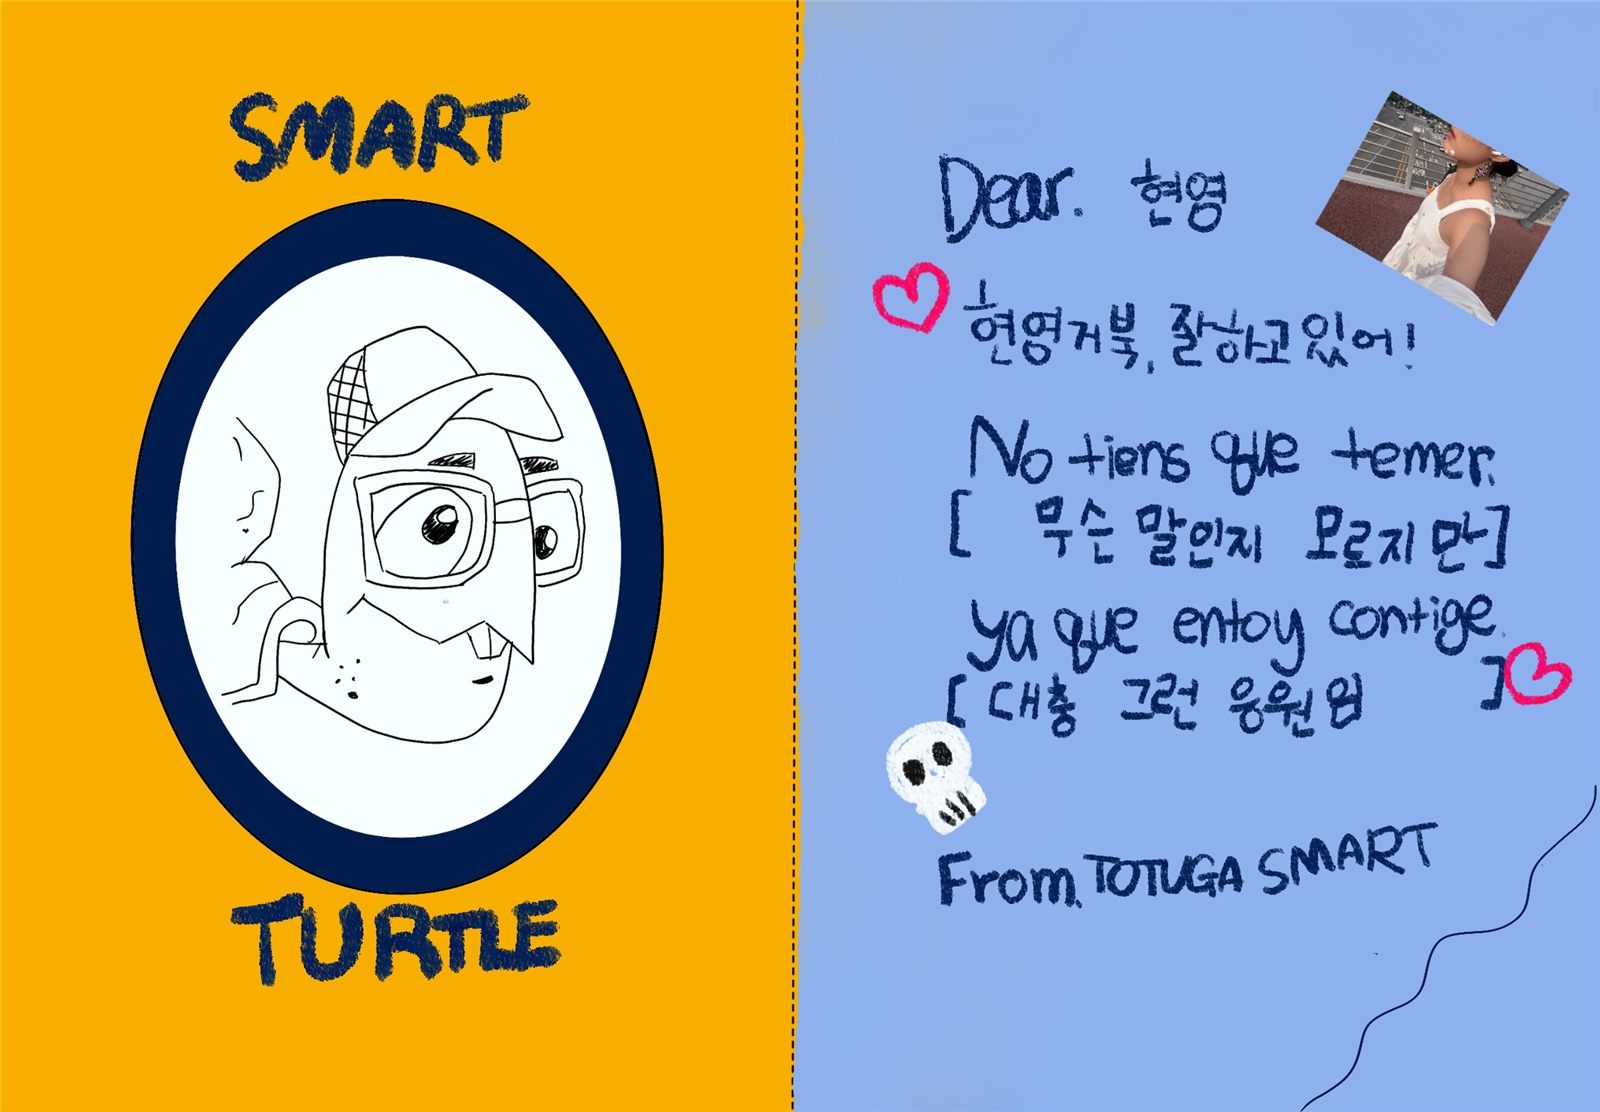 SMART
TURTLE
Dear. 현영
현영거북, 잘하고있어!
No tiens que temer.
[ 무슨 말인지 모르지만]
ya que entoy contige.
[ 대충 그런 응원임 ]
From. TOTUGA SMART